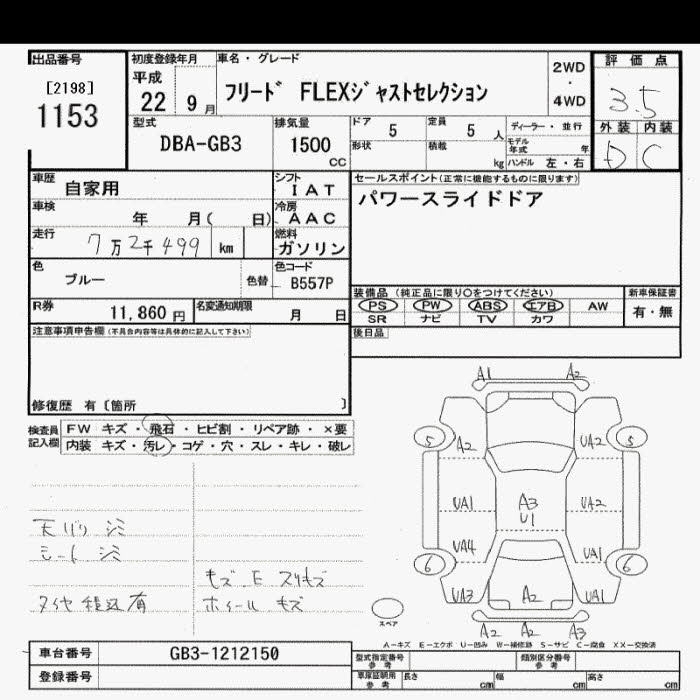 出品番号
[2198]
1153
初度登録年月
平成
22 9 月
車名・グレード
フリード FLEXジャストセレクション
2WD
・
4WD
評価点
3.5
外装 内装
D C
型式
DBA-GB3
排気量
1500
CC
ドア
5
定員
5 人
形状
積載
kg
ディーラー・並行
モデル年式 年
ハンドル 左・右
車歴
自家用
シフト
IAT
車検
年 月( 日)
冷房
AAC
走行
7万2千499 km
燃料
ガソリン
色
ブルー
色替
色コード
B557P
R券
11,860 円
名変通知期限
月 日
セールスポイント(正常に機能するものに限ります)
パワースライドドア
装備品 (純正品に限り○をつけてください)
新車保証書
PS PW ABS エアB AW
有・無
SR ナビ TV カワ
後日品
注意事項申告欄(不具合内容等は具体的に記入して下さい)
修復歴 有〔箇所 〕
検査員
記入欄
FW キズ・飛石・ヒビ割・リペア跡・×要
内装 キズ・汚レ・コゲ・穴・スレ・キレ・破レ
天バリ シミ
シート シミ
タイヤ積込有
モズ.E スリキズ
ホイール キズ
A1 A2
5 A2 UA2 5
UA1 A3 UA2
U1
UA4 UA1
6 6
UA3 A2 UA1
A2 A2 A3
スペア
A-キズ E-エクボ U-凹み W-補修跡 S-サビ C-腐食 XX-交換済
車台番号
GB3-1212150
登録番号
型式指定番号
参考
類別区分番号
参考
車庫証明用
参考
長さ cm
幅 cm
高さ cm